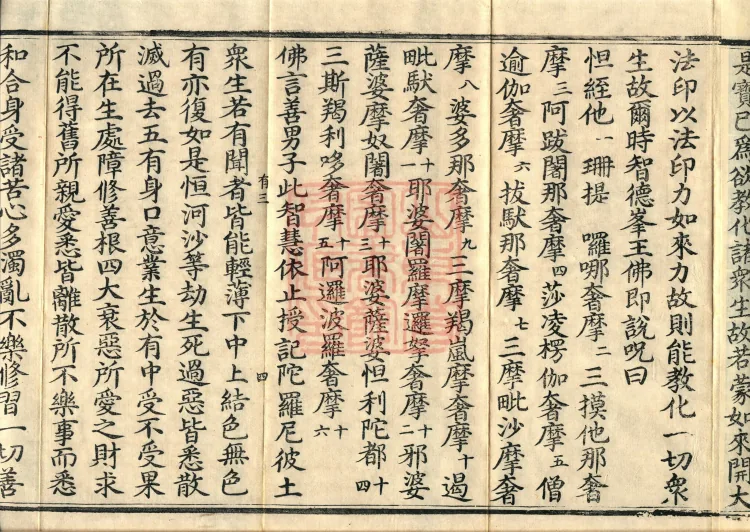 是寶已爲欲教化諸衆生故若蒙如來開大
法印以法印力如來力故則能教化一切衆
生故爾時智德峯王佛即說呪曰
怛絰他一珊提 羅哪奢摩二三摸他那奢
摩三阿跋闍那奢摩四莎凌楞伽奢摩五僧
逾伽奢摩六拔馱那奢摩七三摩毗沙摩奢
摩八婆多那奢摩九三摩羯嵐摩奢摩十遏
毗馱奢摩十一耶婆闍羅摩邏拏奢摩十二邪婆
薩婆摩奴闍奢摩十三耶婆薩婆怛利陀都十四
三斯羯利哆奢摩十五阿邏波羅奢摩十六
佛言善男子此智慧依止授記陀羅尼彼土
衆生若有聞者皆能輕薄下中上結色無色
有三 四
有亦復如是恒河沙等劫生死過惡皆悉散
滅過去五有身口意業生於有中受不受果
所在生處障修善根四大衰惡所愛之財求
不能得舊所親愛悉皆離散所不樂事而悉
和合身受諸苦心多濁亂不樂修習一切善